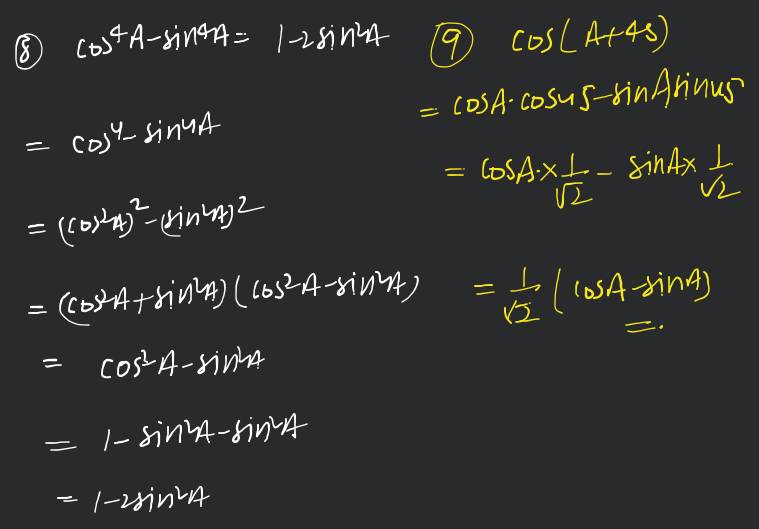 ⑧ cos⁴A-sin⁴A= 1-2sin²A
= cos⁴-sin⁴A
= (cos²A)²-(sin²A)²
= (cos²A+sin²A)(cos²A-sin²A)
= cos²A-sin²A
= 1-sin²A-sin²A
= 1-2sin²A
⑨ cos(A+45)
= cosA·cos45-sinAsin45
= cosA·x 1/√2 - sinAx 1/√2
= 1/√2 (cosA-sinA)